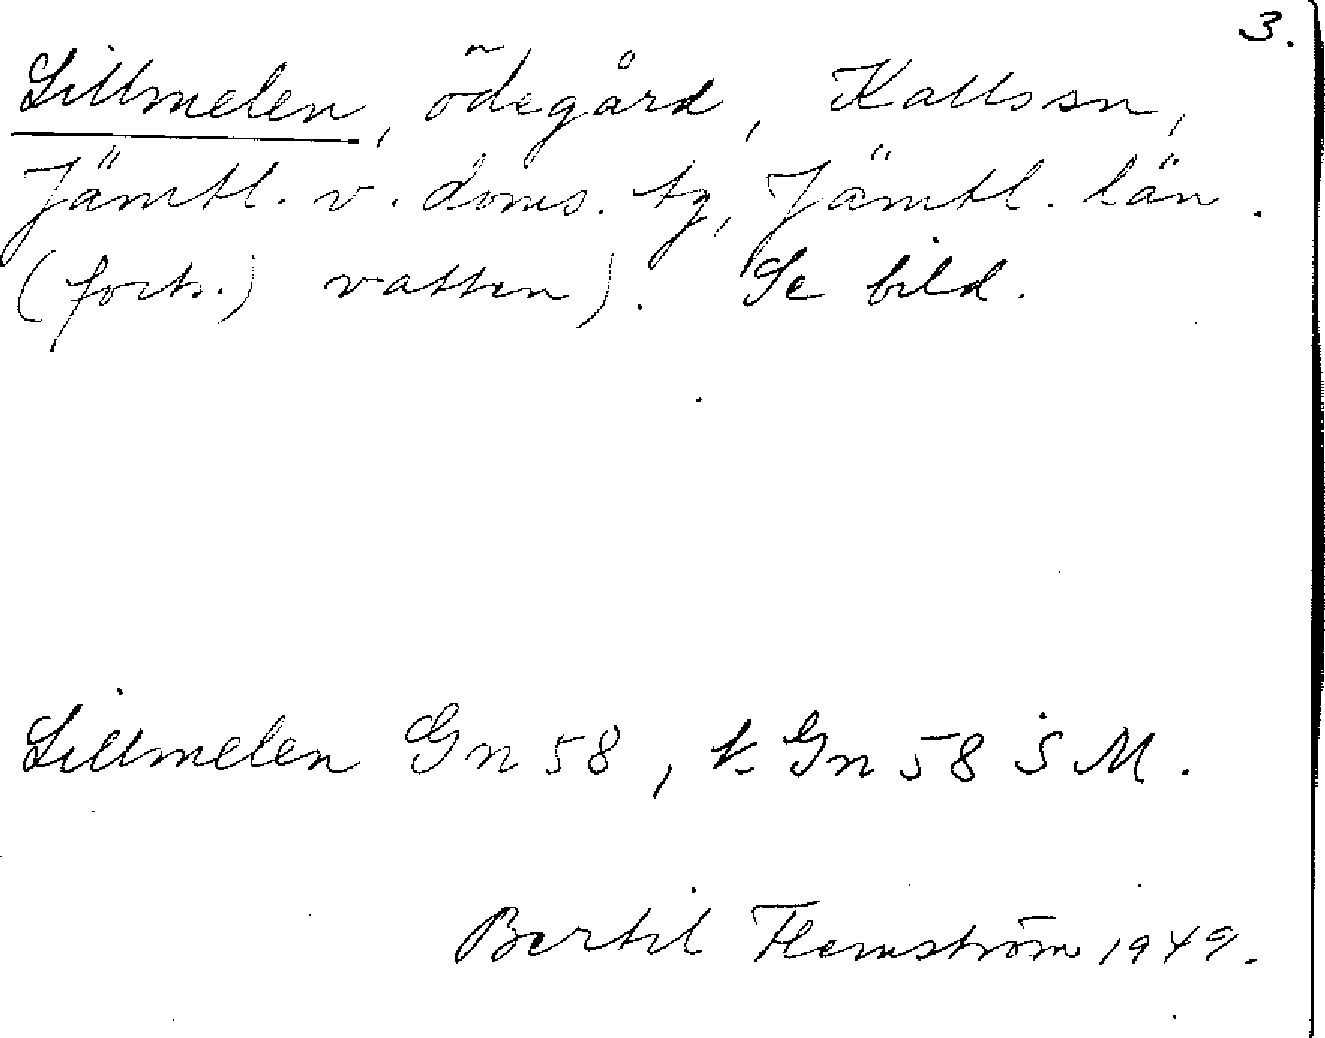 3.
Lillmelen, ödegård, Kallssn,
Jämtl. v. doms. tg, Jämtl. län.
(forts.) vatten). Se bild.
Lillmelen Gn 58, k. Gn 58 S M.
Bertil Flemström 1949.